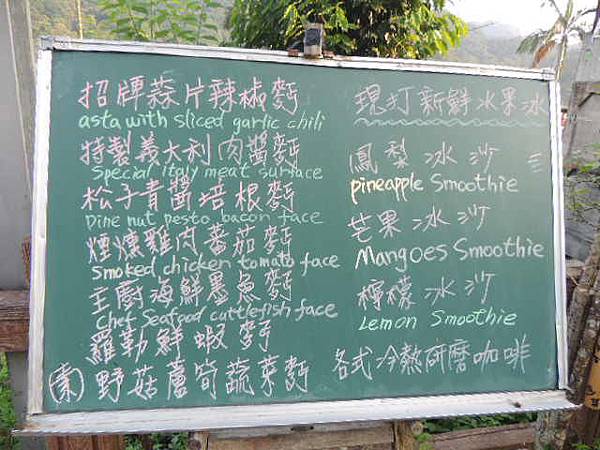 招牌蒜片辣椒麵
asta with sliced garlic chili
特製義大利肉醬麵
Special italy meat surface
松子青醬培根麵
Pine nut pesto bacon face
煙燻雞肉蕃茄麵
Smoked chicken tomato face
主廚海鮮墨魚麵
Chef Seafood cuttlefish face
羅勒鮮蝦麵
素 野菇蘆筍蔬菜麵
現打新鮮水果冰
鳳梨冰沙
pineapple Smoothie
芒果冰沙
Mangoes Smoothie
檸檬冰沙
Lemon Smoothie
各式冷熱研磨咖啡